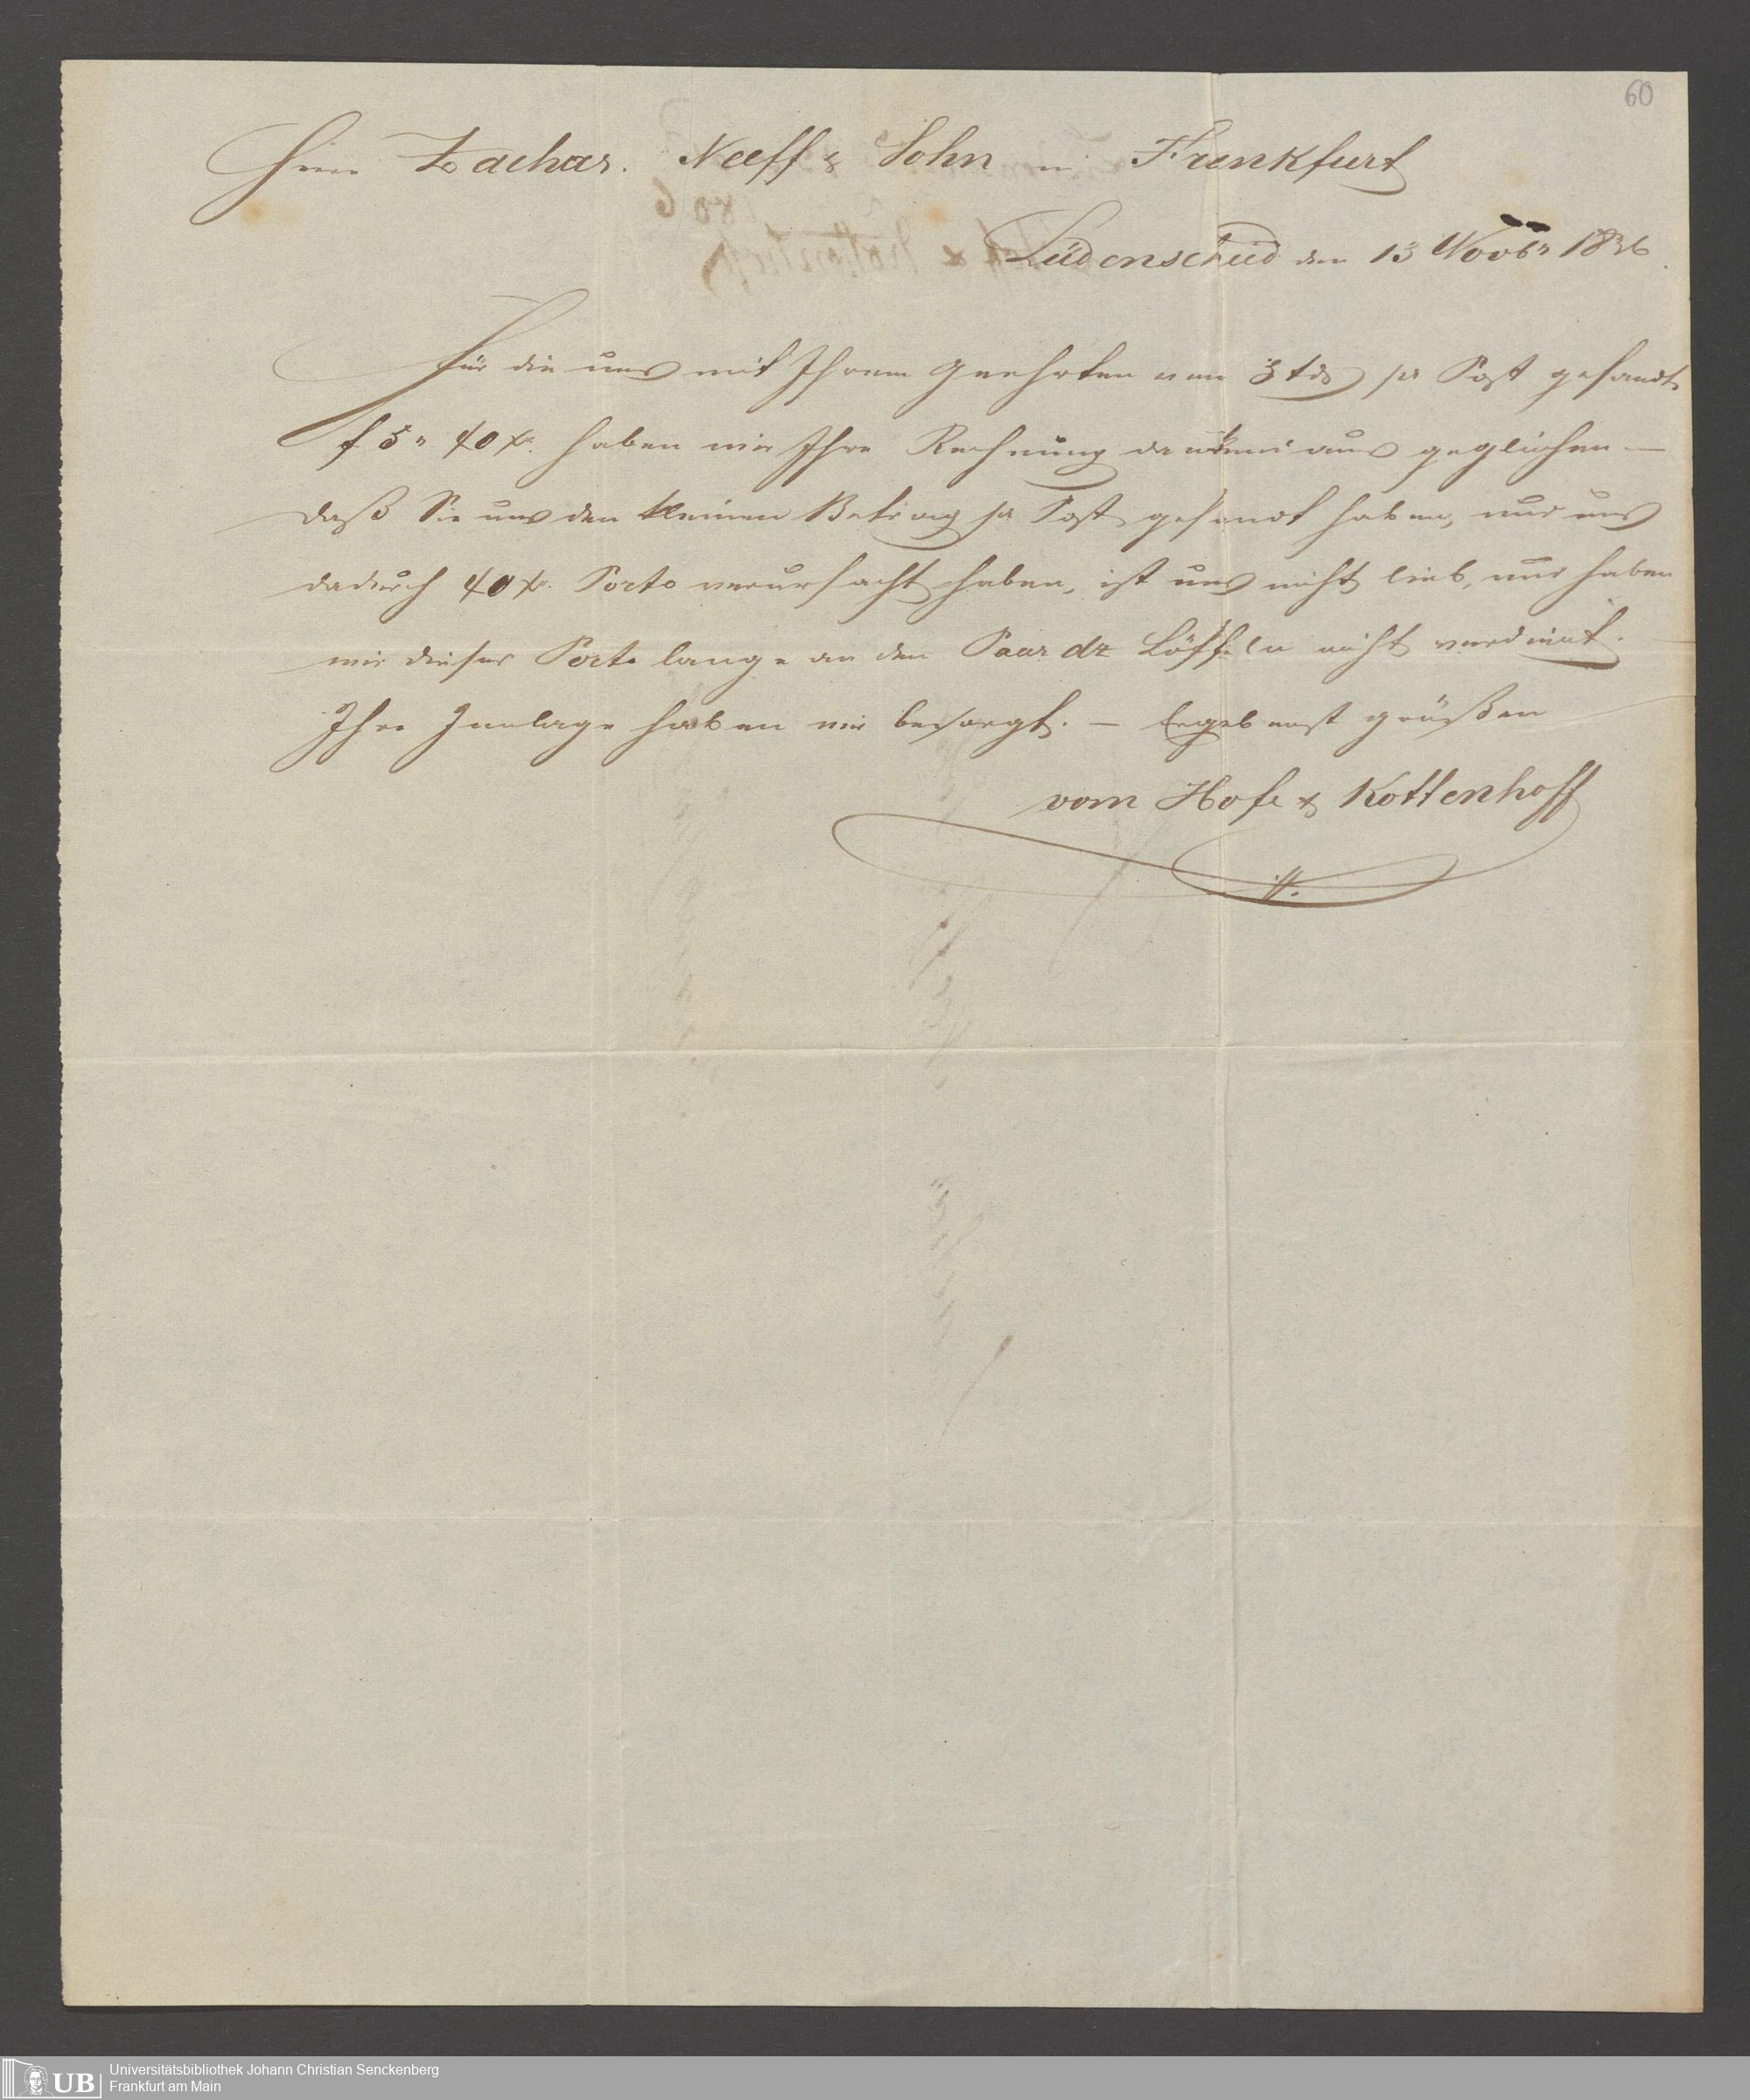 60
Herren Zachar. Neeff & Sohn in Frankfurt
Lüdenscheid den 13 Novbr 1836.
Für die uns mit Ihrem Geehrten vom 3 tds pr Post gesandte
f 5 " 40 xr. haben wir Ihre Rechnung dankend ausgeglichen —
daß Sie uns den kleinen Betrag pr Post gesandt haben, und uns
dadurch 40 xr. Porto verursacht haben, ist uns nicht lieb, und haben
wir dieses Porto lange an den Paar dz Löffeln nicht verdient.
Ihre Innlage haben wir besorgt. — Ergebenst grüßen
vom Hofe & Kottenhoff
Universitätsbibliothek Johann Christian Senckenberg
Frankfurt am Main
UB